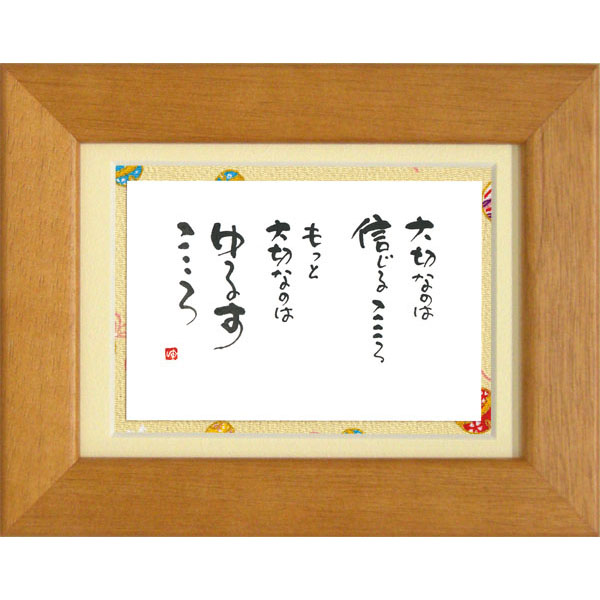 大切なのは
信じるこころ
もっと
大切なのは
ゆるす
こころ